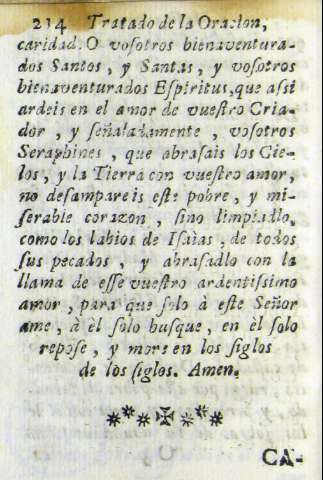 234 Tratado de la Oracion,
caridad. O vosotros bienaventura-
dos Santos, y Santas, y vosotros
bienaventurados Espiritus, que assi
ardeis en el amor de vuestro Cria-
dor, y señaladamente, vosotros
Seraphines, que abrasais los Cie-
los, y la Tierra con vuestro amor,
no desampareis este pobre, y mi-
serable corazon, sino limpiadlo,
como los labios de Isaìas, de todos
sus pecados, y abrasadlo con la
llama de esse vuestro ardentissimo
amor, para que solo à este Señor
ame, à èl solo busque, en èl solo
repose, y more en los siglos
de los siglos. Amen.
CA-